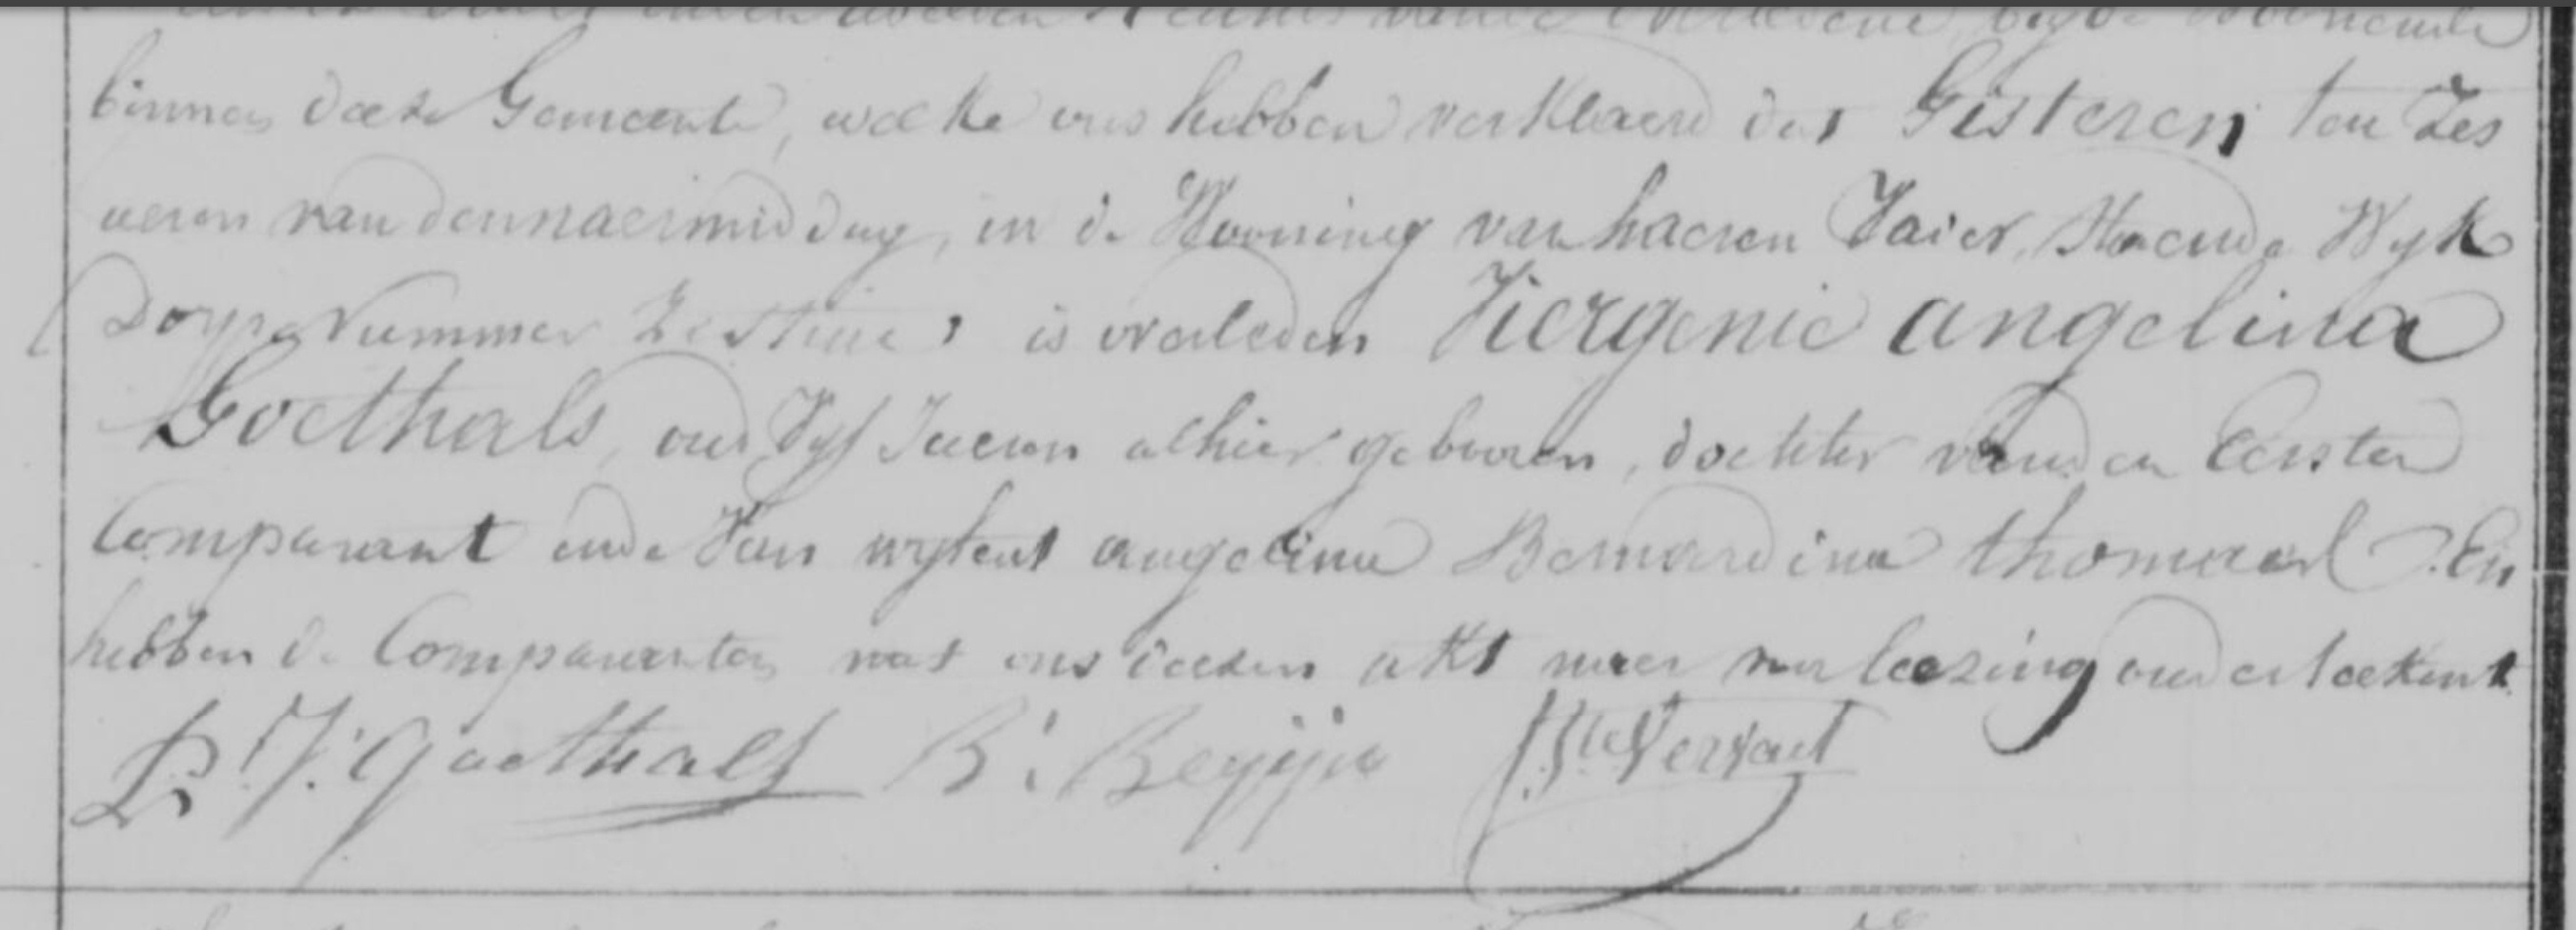 binnen deeze Gemeente, welke ons hebben verklaerd dat Gisteren ten Zes
ueren van den naermiddag, in de Wooning van haeren Vaier, Staende Wyk
Dorp Nummer Zestien, is overleden Viergenie angelina
Goethals, oud Vyf Jaeren alhier gebooren, dochter van den Eersten
Comparant ende Van wylent angelina Bernardina thomaes. En
hebben de Comparanten met ons deezen akt naer voorleezing onderteekent
P. J. Goethals B. Vervaet